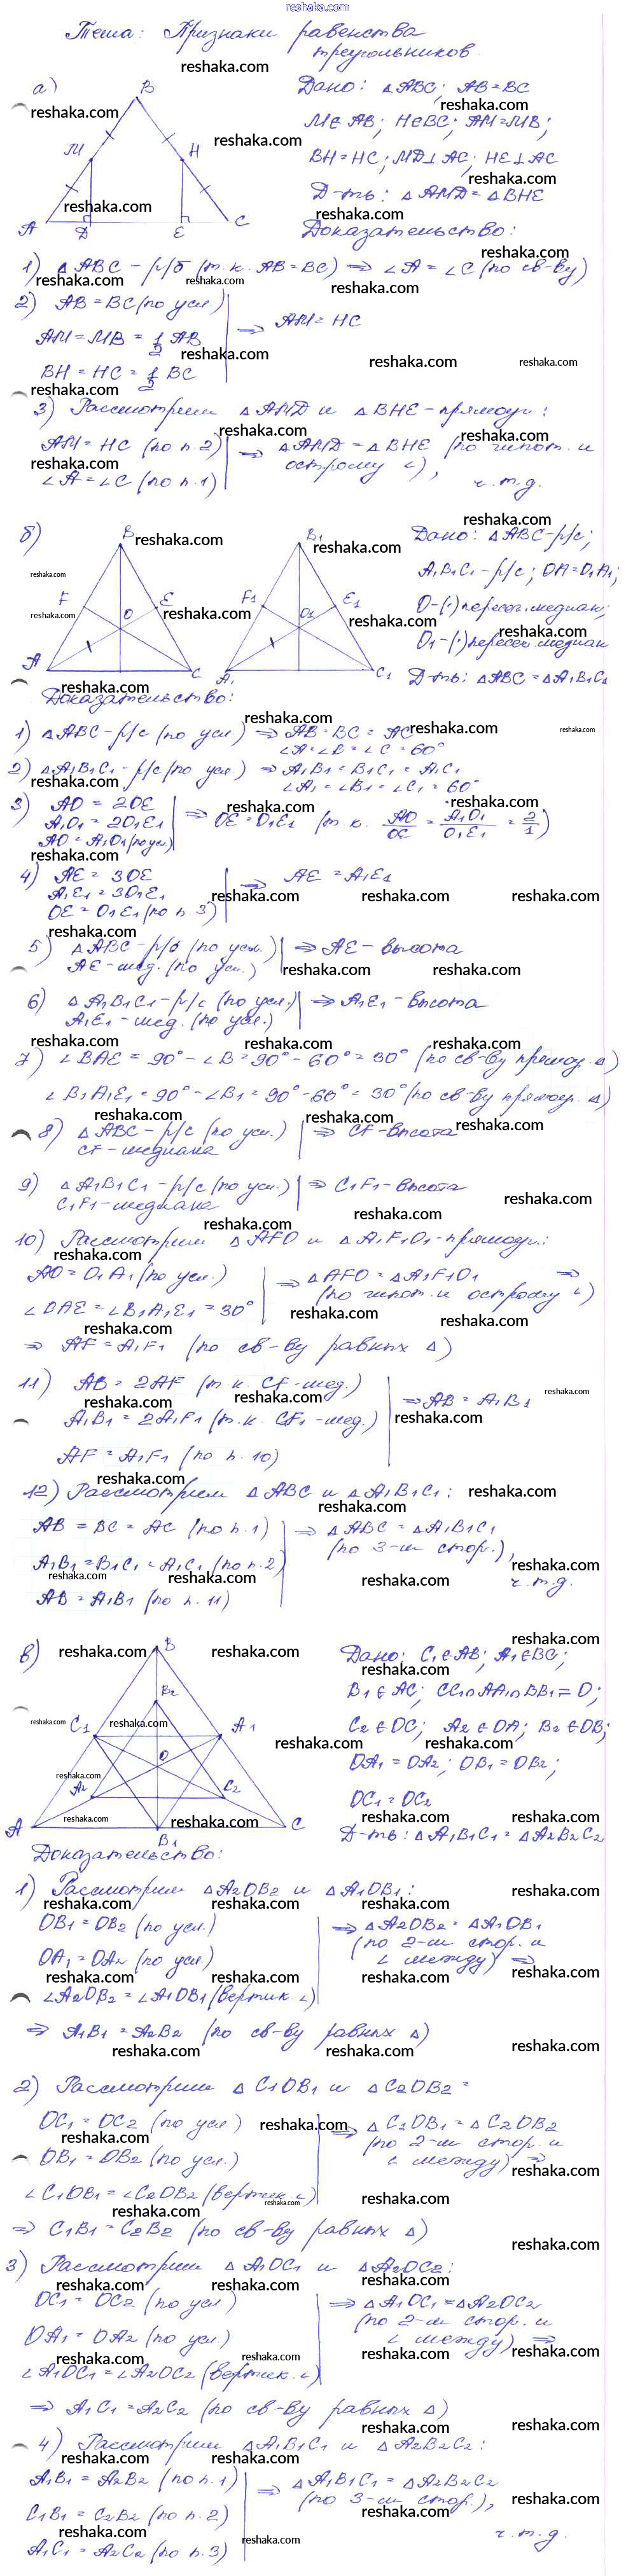 reshaka.com
Тема: Признаки равенства
треугольников
а)
Дано: △ABC; AB=BC
M∈AB; H∈BC; AM=MB;
BH=HC; MD⊥AC; HE⊥AC
Д-ть: △AMD=△BHE
Доказательство:
B
M
H
A
D
E
C
1) △ABC – р/б (т.к. AB=BC) ⇒ ∠A=∠C (по св-ву)
2) AB=BC (по усл)
AM=MB=1/2 AB
BH=HC=1/2 BC
⇒ AM=HC
3) Рассмотрим △AMD и △BHE – прямоуг:
AM=HC (по п.2)
∠A=∠C (по п.1)
⇒ △AMD=△BHE (по гипот. и
острому ∠),
ч.т.д.
б)
Дано: △ABC – р/с;
A1B1C1 – р/с; OA=O1A1;
O – (·) пересеч. медиан;
O1 – (·) пересеч. медиан
Д-ть: △ABC=△A1B1C1
B
F
O
E
A
C
B1
F1
O1
E1
A1
C1
Доказательство:
1) △ABC – р/с (по усл) ⇒ AB=BC=AC
∠A=∠B=∠C=60°
2) △A1B1C1 – р/с (по усл) ⇒ A1B1=B1C1=A1C1
∠A1=∠B1=∠C1=60°
3) AO=2OE
A1O1=2O1E1
AO=A1O1 (по усл)
⇒ OE=O1E1 (т.к. AO/OE = A1O1/O1E1 = 2/1)
4) AE=3OE
A1E1=3O1E1
OE=O1E1 (по п.3)
⇒ AE=A1E1
5) △ABC – р/б (по усл.)
AE – мед. (по усл.)
⇒ AE – высота
6) △A1B1C1 – р/с (по усл.)
A1E1 – мед. (по усл.)
⇒ A1E1 – высота
7) ∠BAE=90°–∠B=90°–60°=30° (по св-ву прямоуг. △)
∠B1A1E1=90°–∠B1=90°–60°=30° (по св-ву прямоуг. △)
8) △ABC – р/с (по усл.)
CF – медиана
⇒ CF – высота
9) △A1B1C1 – р/с (по усл.)
C1F1 – медиана
⇒ C1F1 – высота
10) Рассмотрим △AFO и △A1F1O1 – прямоуг.:
AO=O1A1 (по усл.)
∠DAE=∠B1A1E1=30°
⇒ △AFO=△A1F1O1 ⇒
(по гипот. и острому ∠)
⇒ AF=A1F1 (по св-ву равных △)
11) AB=2AF (т.к. CF – мед.)
A1B1=2A1F1 (т.к. CF1 – мед.)
AF=A1F1 (по п.10)
⇒ AB=A1B1
12) Рассмотрим △ABC и △A1B1C1:
AB=BC=AC (по п.1)
A1B1=B1C1=A1C1 (по п.2)
AB=A1B1 (по п.11)
⇒ △ABC=△A1B1C1
(по 3-м стор.),
ч.т.д.
в)
Дано: C1∈AB; A1∈BC;
B1∈AC; CC1∩AA1∩BB1=O;
C2∈OC; A2∈OA; B2∈OB;
OA1=OA2; OB1=OB2;
OC1=OC2
Д-ть: △A1B1C1=△A2B2C2
B
B2
C1
A1
O
A2
C2
A
B1
C
Доказательство:
1) Рассмотрим △A2OB2 и △A1OB1:
OB1=OB2 (по усл.)
OA1=OA2 (по усл)
∠A2OB2=∠A1OB1 (вертик. ∠)
⇒ △A2OB2=△A1OB1
(по 2-м стор. и
∠ между) ⇒
⇒ A1B1=A2B2 (по св-ву равных △)
2) Рассмотрим △C1OB1 и △C2OB2:
OC1=OC2 (по усл)
OB1=OB2 (по усл.)
∠C1OB1=∠C2OB2 (вертик. ∠)
⇒ △C1OB1=△C2OB2
(по 2-м стор. и
∠ между) ⇒
⇒ C1B1=C2B2 (по св-ву равных △)
3) Рассмотрим △A1OC1 и △A2OC2:
OC1=OC2 (по усл)
OA1=OA2 (по усл)
∠A1OC1=∠A2OC2 (вертик. ∠)
⇒ △A1OC1=△A2OC2
(по 2-м стор. и
∠ между) ⇒
⇒ A1C1=A2C2 (по св-ву равных △)
4) Рассмотрим △A1B1C1 и △A2B2C2:
A1B1=A2B2 (по п.1)
C1B1=C2B2 (по п.2)
A1C1=A2C2 (по п.3)
⇒ △A1B1C1=△A2B2C2
(по 3-м стор.),
ч.т.д.